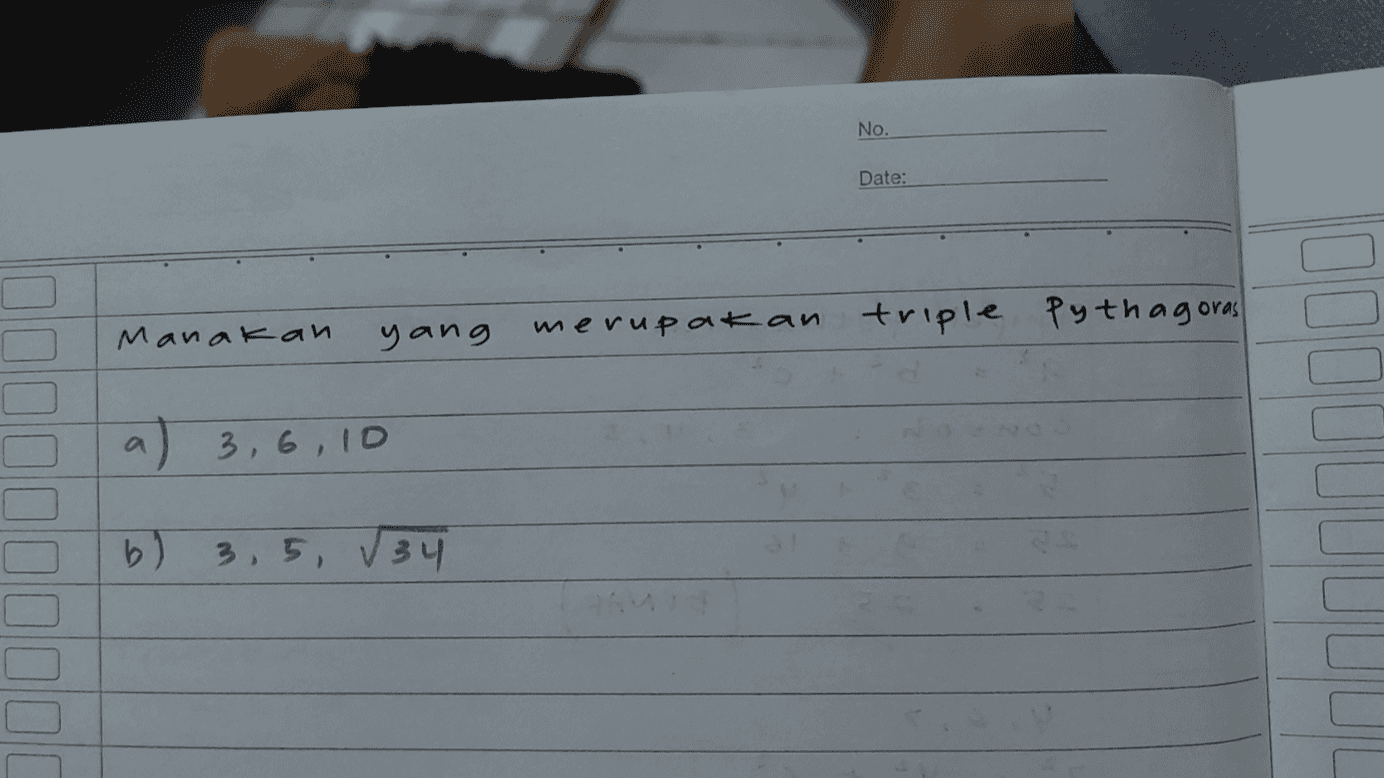 No.
Date:
Manakah yang merupakan triple Pythagoras
a) 3, 6, 10
b) 3, 5, √34